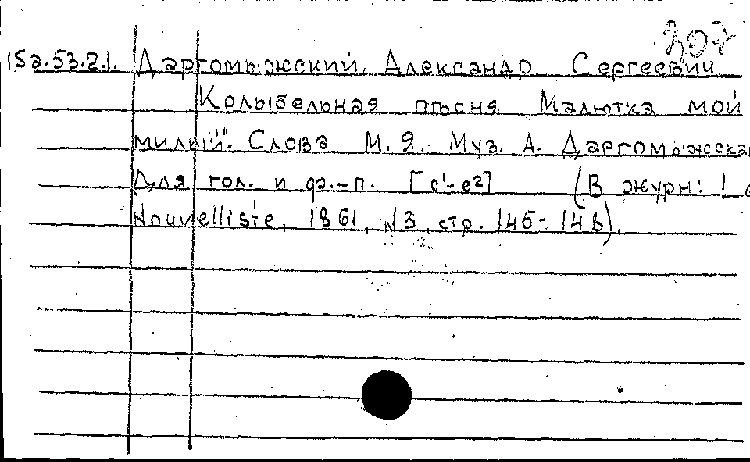 207
(Sa.53.2). Даргомыжский, Александр Сергеевич
Колыбельная пѣсня "Малютка мой
милый". Слова М. Я. Муз. А. Даргомыжска
Для гол. и ф.-п. [c¹-e²] (В журн: Le
Nouvelliste, 1861, №3, стр. 145-148).